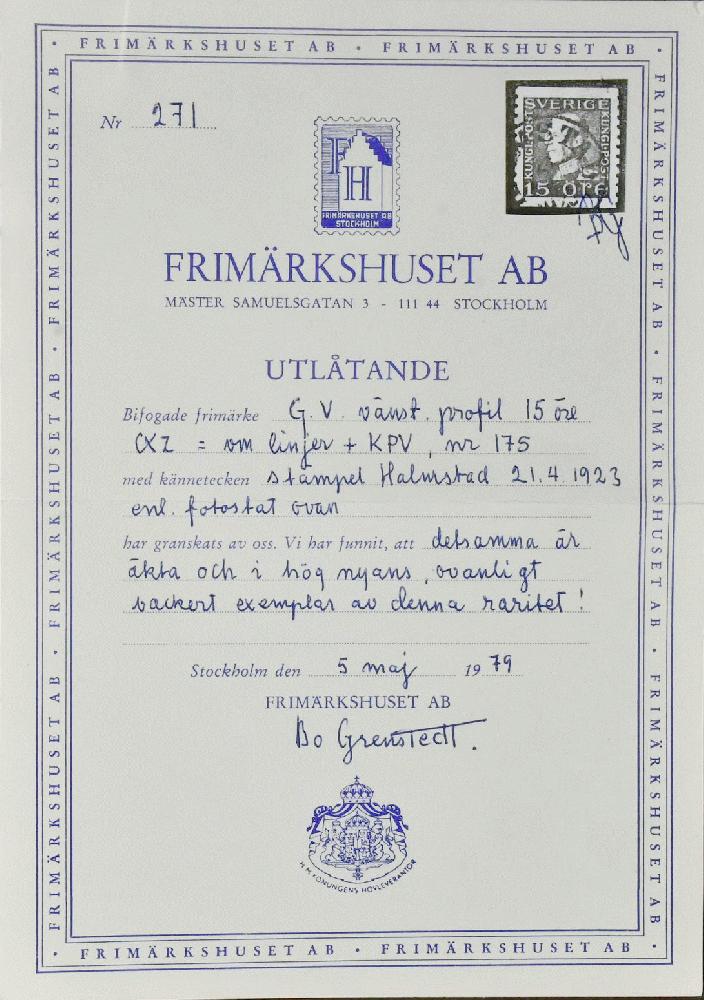 FRIMÄRKSHUSET AB • FRIMÄRKSHUSET AB
FRIMÄRKSHUSET AB • FRIMÄRKSHUSET AB • FRIMÄRKSHUSET AB
FRIMÄRKSHUSET AB • FRIMÄRKSHUSET AB • FRIMÄRKSHUSET AB
Nr 271
SVERIGE
KUNGL. POST
KUNGL. POST
15 ÖRE
F H
FRIMÄRKSHUSET AB
STOCKHOLM
FRIMÄRKSHUSET AB
MÄSTER SAMUELSGATAN 3 - 111 44 STOCKHOLM
UTLÅTANDE
Bifogade frimärke G.V. vänst. profil 15 öre
cxz = vm linjer + KPV, nr 175
med kännetecken stämpel Halmstad 21.4.1923
enl. fotostat ovan
har granskats av oss. Vi har funnit, att detsamma är
äkta och i hög nyans, ovanligt
vackert exemplar av denna raritet!
Stockholm den 5 maj 1979
FRIMÄRKSHUSET AB
Bo Grenstedt.
H.M. KONUNGENS HOVLEVERANTÖR
FRIMÄRKSHUSET AB • FRIMÄRKSHUSET AB